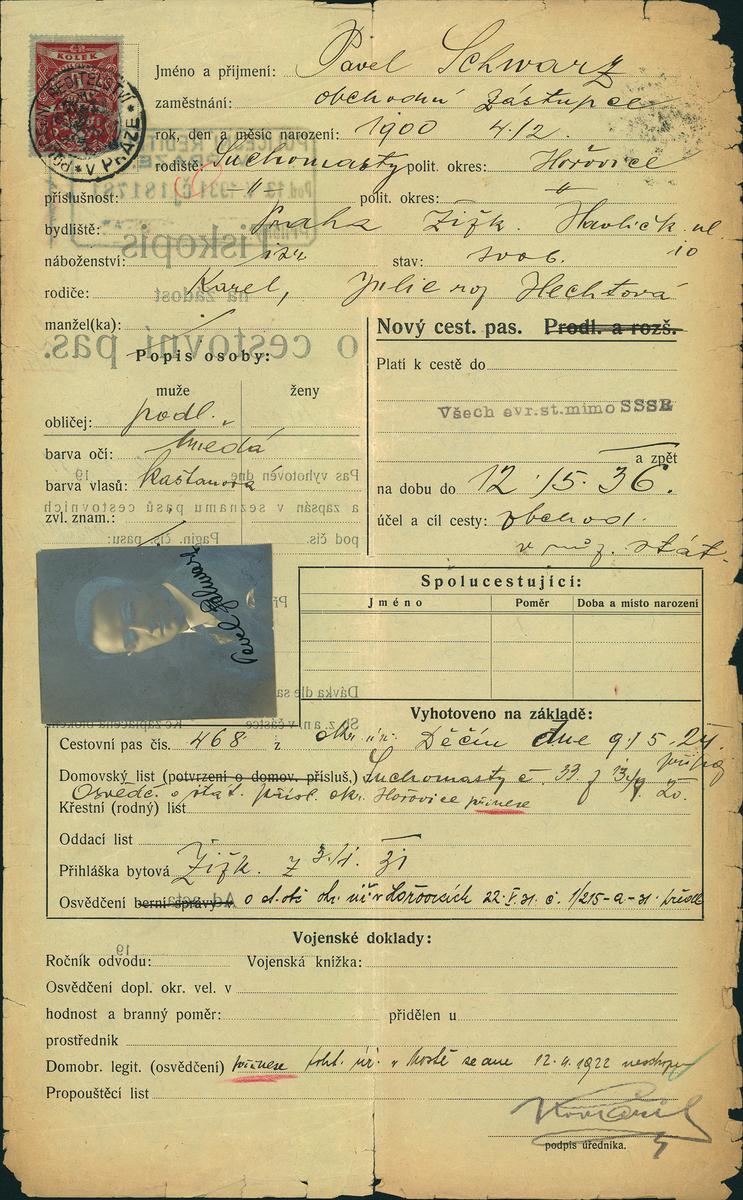 KOLEK
POLICEJNÍ ŘEDITELSTVÍ V PRAZE
Jméno a příjmení: Pavel Schwarz
zaměstnání: obchodní zástupce
rok, den a měsíc narození: 1900 4/2.
rodiště: Suchomasty polit. okres: Hořovice
příslušnost: -"- polit. okres: "
bydliště: Praha Žižk. Havlíčk. ul. 10
náboženství: izr. stav: svob.
rodiče: Karel, Julie roz Hechtová
manžel(ka):
Nový cest. pas. Prodl. a rozš.
Popis osoby:
Platí k cestě do
muže ženy
Všech evr.st.mimo SSSR
obličej: podl.
barva očí: hnědá
a zpět
barva vlasů: kaštanová
na dobu do 12/5. 36.
zvl. znam.:
účel a cíl cesty: obchod.
v růz. stát.
Pavel Schwarz
Spolucestující:
Jméno Poměr Doba a místo narození
Vyhotoveno na základě:
Cestovní pas čís. 468 z okr. úř. Děčín dne 9/5. 27.
Domovský list (potvrzení o domov. přísluš.) Suchomasty č. 33 z
Osvědč. o stát. přísl. okr. Hořovice přinese
Křestní (rodný) list
Oddací list
Přihláška bytová Žižk. z 3/1. 31
Osvědčení berní správy v o d.obč. okr. úř. v Hořovicích 22.V.31. č. 1/215-a-31
Vojenské doklady:
Ročník odvodu: Vojenská knížka:
Osvědčení dopl. okr. vel. v
hodnost a branný poměr: přidělen u
prostředník
Domobr. legit. (osvědčení) přinese v Mostě ze dne 12.4.1922 neschopen
Propouštěcí list
podpis úředníka.